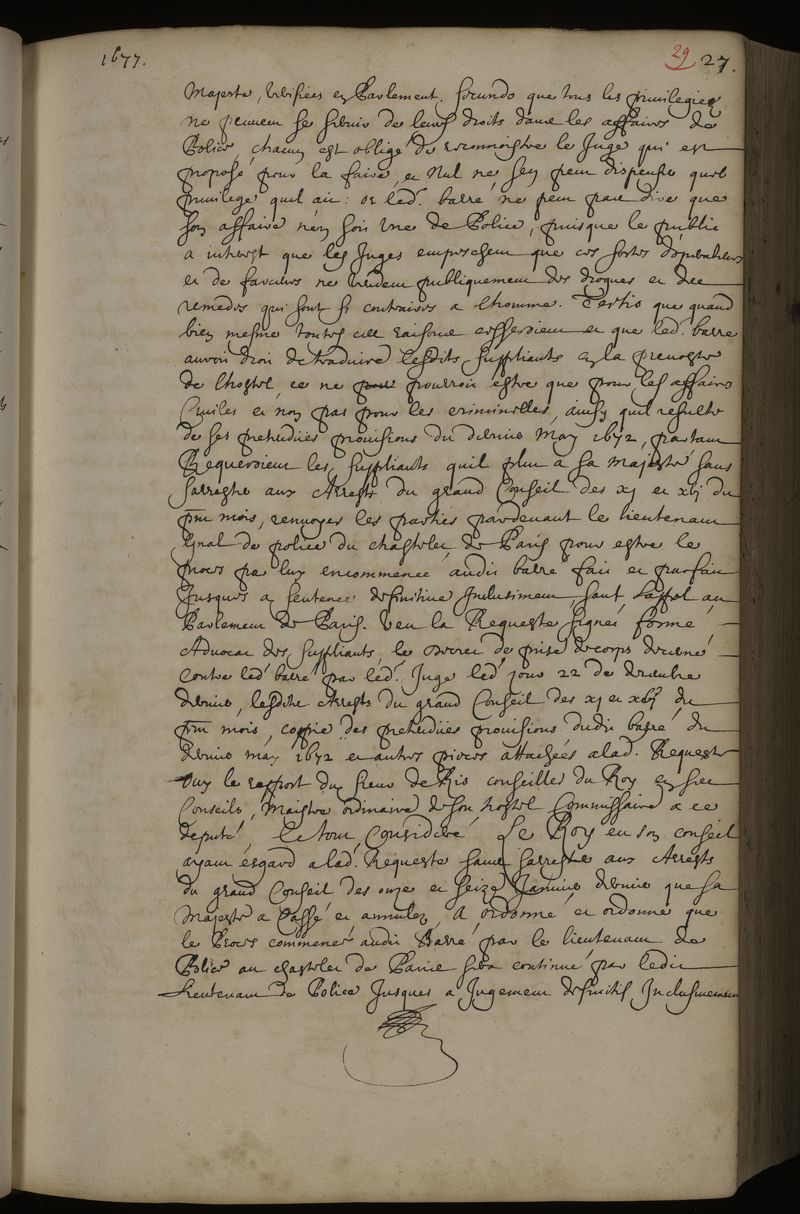 1677.
29
27.
Majesté, verifiées en Parlement. Secundo que tous les privilegiez
ne peuvent se servir de leurs droits dans les affaires de
Police, chacun est obligé de reconnoistre le Juge qui est
preposé pour la faire, et Nul ne s'en peut dispenser quel
privilege quil ait: or led. barré ne peut pas dire que
son affaire n'en soit une de Police, puisque le public
a interest que les Juges empeschent que ces sortes
et de ne vendent publiquement des drogues et des
remedes qui sont si contraires a l'homme. Tertio que quand
bien mesme toutes ces raisons cesseroient et que led. barré
auroit droit de traduire lesdits suppliants en la prevosté
de l'hostel, ce ne pourroit estre que pour les affaires
Civiles et non pas pour les criminelles, ainsy quil resulte
de ses pretendües provisions du dernier May 1672, partant
Requeroient les suppliants quil plut a sa Majesté sans
s'arrester aux Arrests du grand Conseil des xj et xvj du
pnt mois, renvoyer les parties pardevant le lieutenant
gnal de police du chastelet de Paris pour estre le
proces par luy encommencé audit barré fait et parfait
Jusques a sentence definitive Inclusivement, sauf l'appel au
Parlement de Paris. Veu la Requeste signée formé
Advocat des suppliants, le decret de prise de corps decerné
contre led barré par led. Juge led jour 22 de decembre
dernier, lesdits Arrests du grand Conseil des xj et xvj du
pnt mois, coppie des pretendües provisions dudit barré du
dernier may 1672 et autres pieces attachées a lad. Requeste
Ouy le rapport du sieur de Ris conseiller du Roy en ses
Conseils, Maistre ordinaire de son hostel Commissaire a ce
deputé, Et tout Consideré Le Roy en son conseil
ayant esgard a lad. Requeste sans s'arrester aux Arrests
du grand Conseil des onze et seize Janvier dernier que sa
Majesté a Cassé et annulez, A ordonné et ordonne que
le Proces commencé audit Barré par le lieutenant de
Police au chastelet de Paris sera continué par ledit
Lieutenant de Police Jusques a Jugement definitif Inclusivement